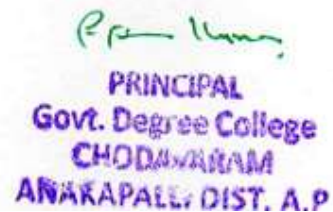 PRINCIPAL
Govt. Degree College
CHODAVARAM
ANAKAPALLI DIST. A.P